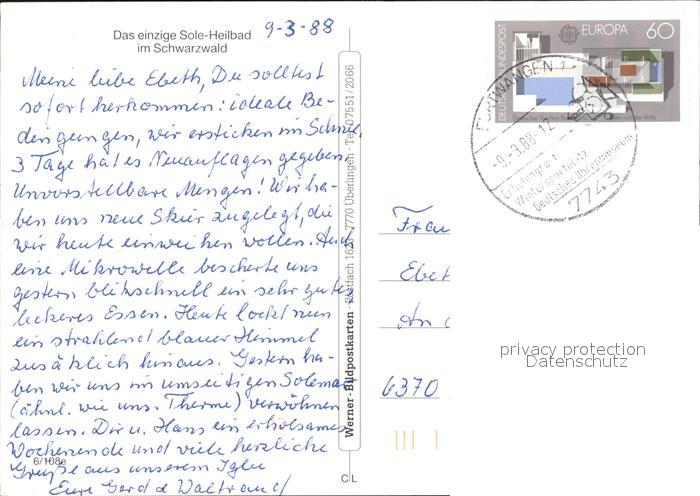 Das einzige Sole-Heilbad
im Schwarzwald
9-3-88
Meine liebe Ebeth, Du solltest
sofort herkommen: ideale Be-
dingungen, wir ersticken im Schnee,
3 Tage hat es Neuauflagen gegeben.
Unvorstellbare Mengen! Wir ha-
ben uns neue Skier zugelegt, die
wir heute einweihen wollen. Auch
eine Mikrowelle bescherte uns
gestern blitzschnell ein sehr gutes
leckeres Essen. Heute lockt nun
ein strahlend blauer Himmel
zusätzlich hinaus. Gestern ha-
ben wir uns im umseitigen Solemar
(ähnl. wie uns. Therme) verwöhnen
lassen. Dir u. Hans ein erholsames
Wochenende und viele herzliche
Grüße aus unserem Iglu
Eure Gerd & Waltraud
6/108e
Werner-Bildpostkarten · Postfach 1625 · 7770 Überlingen · Tel. 07551/2066
C L
DEUTSCHE BUNDESPOST
EUROPA 60
FURTWANGEN 1
-9.-3.88-12
Erholungsort
Wintersportplatz
Deutsches Uhrenmuseum
7743
Frau
Ebet
An
6370
privacy protection
Datenschutz